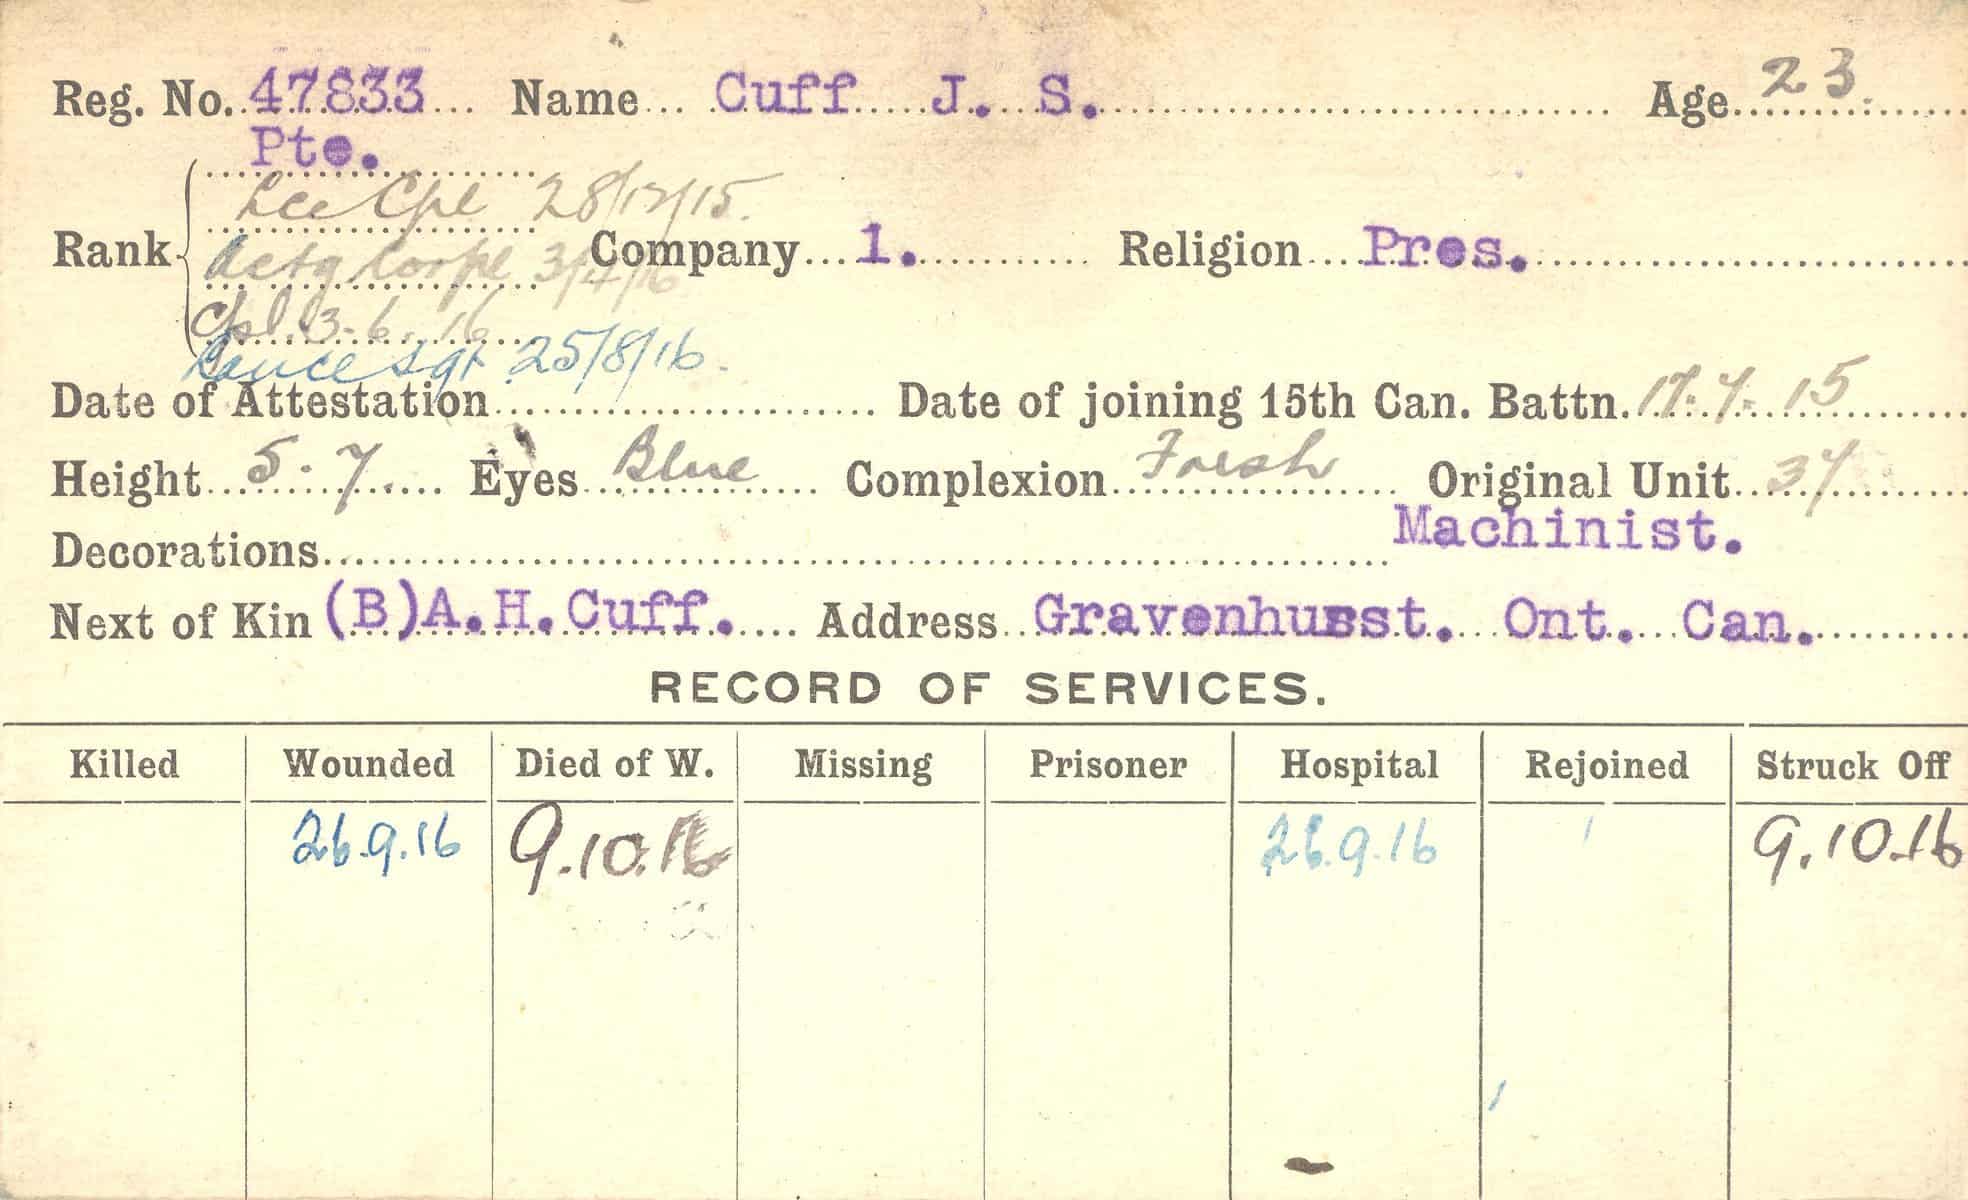 Reg. No. 47833 Name Cuff J. S. Age 23.
Pte.
Lce Cpl 28/12/15.
Rank Actg Corpl 3/4/16 Company 1. Religion Pres.
Cpl. 3-6-16
Lance Sgt 25/8/16.
Date of Attestation Date of joining 15th Can. Battn. 17.7.15
Height 5-7 Eyes Blue Complexion Fresh Original Unit 37
Machinist.
Decorations
Next of Kin (B)A.H.Cuff. Address Gravenhurst. Ont. Can.
RECORD OF SERVICES.
Killed Wounded Died of W. Missing Prisoner Hospital Rejoined Struck Off
26.9.16 9.10.16 26.9.16 9.10.16